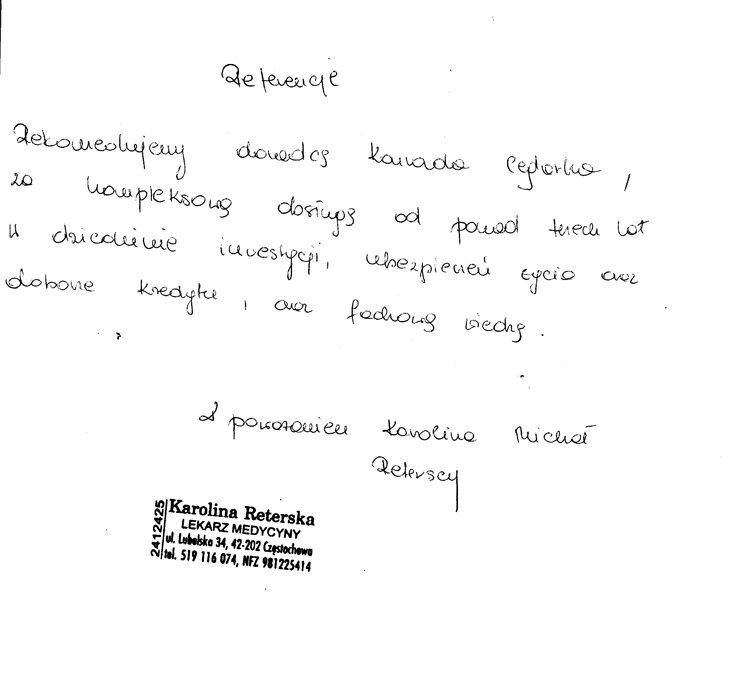 Referencje
Rekomendujemy doradcę Konrada
za kompleksową obsługę od ponad trzech lat
w dziedzinie inwestycji, ubezpieczeń życia oraz
doborze kredytu, oraz fachową wiedzę.
Z poważaniem Karolina Michał
Reterscy
Karolina Reterska
LEKARZ MEDYCYNY
ul. Lubelska 34, 42-202 Częstochowa
tel. 519 116 074, NFZ 981225414
2412425